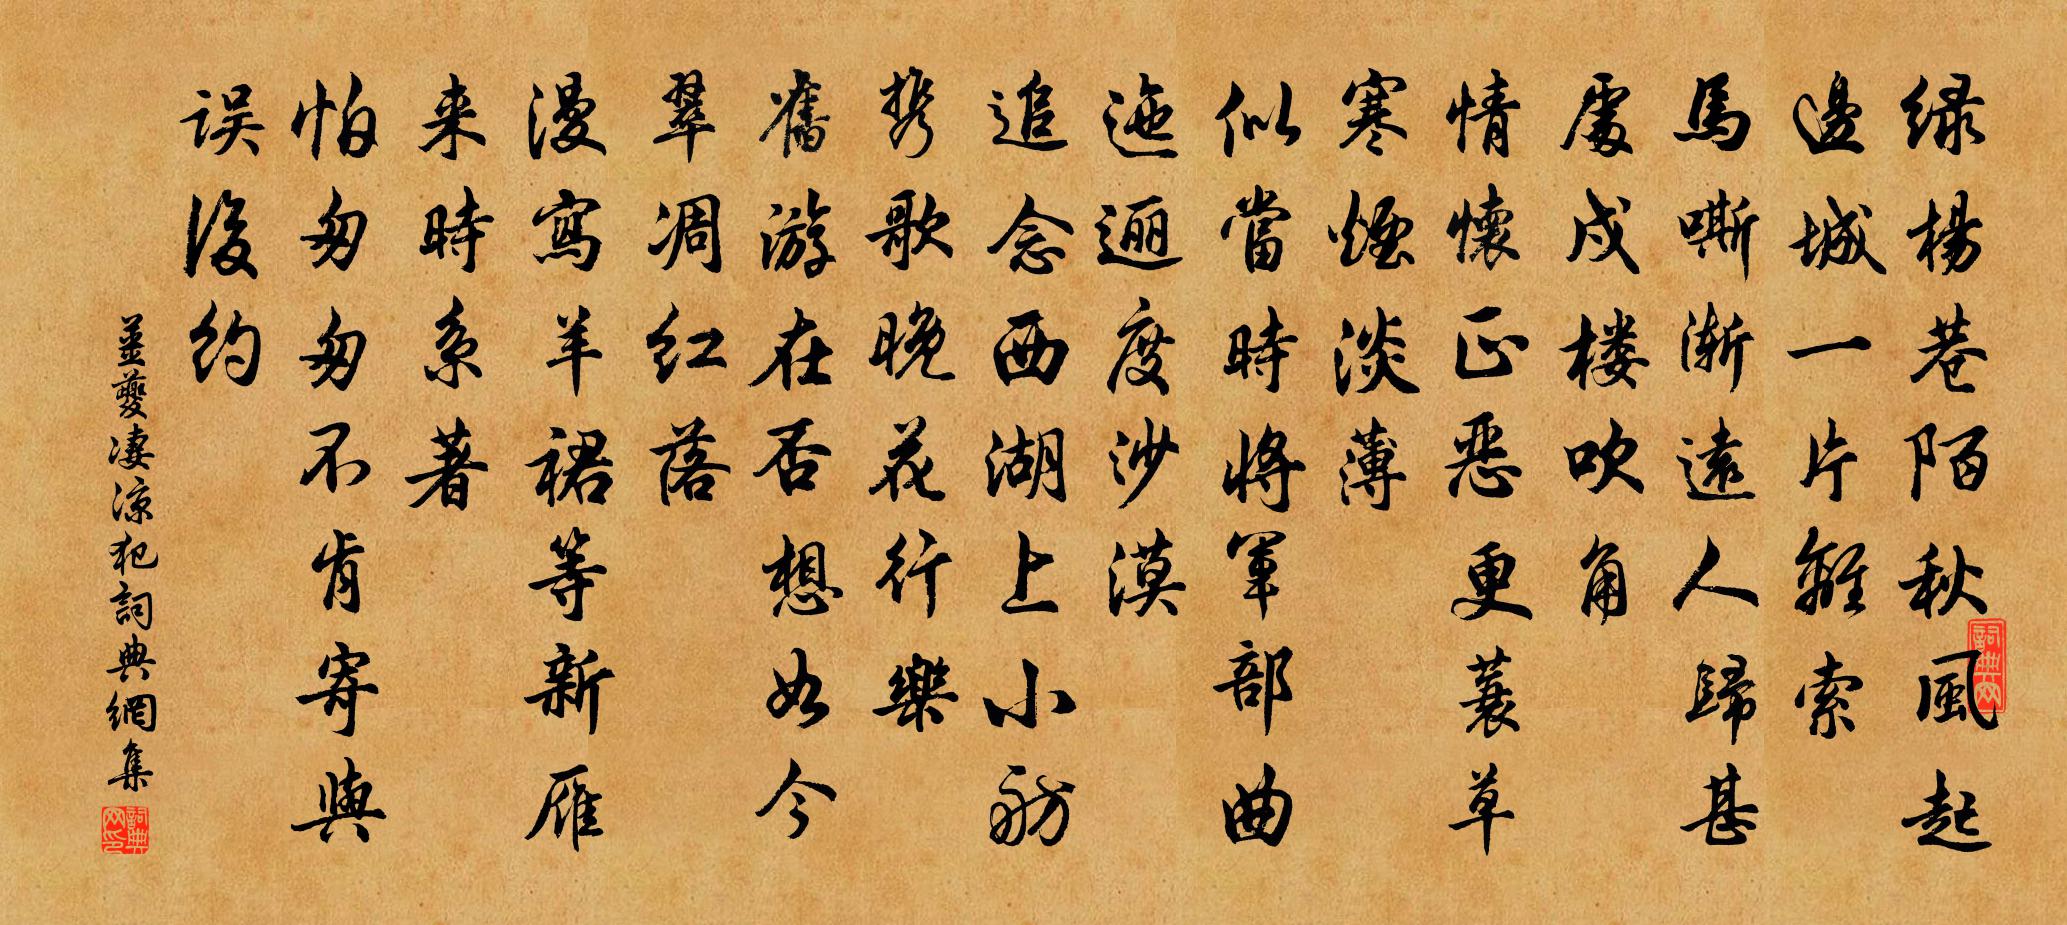 绿楊巷陌秋風起
邊城一片離索
馬嘶渐遠人歸甚
處戍楼吹角
情懷正惡更蓑草
寒煙淡薄
似當時將軍部曲
迤逦度沙漠
追念西湖上小舫
携歌晚花行樂
舊游在否想如今
翠凋红落
漫寫羊裙等新雁
来時系著
怕匆匆不肯寄與
误後约
姜夔凄凉犯詞典網集
詞典网
詞典网印